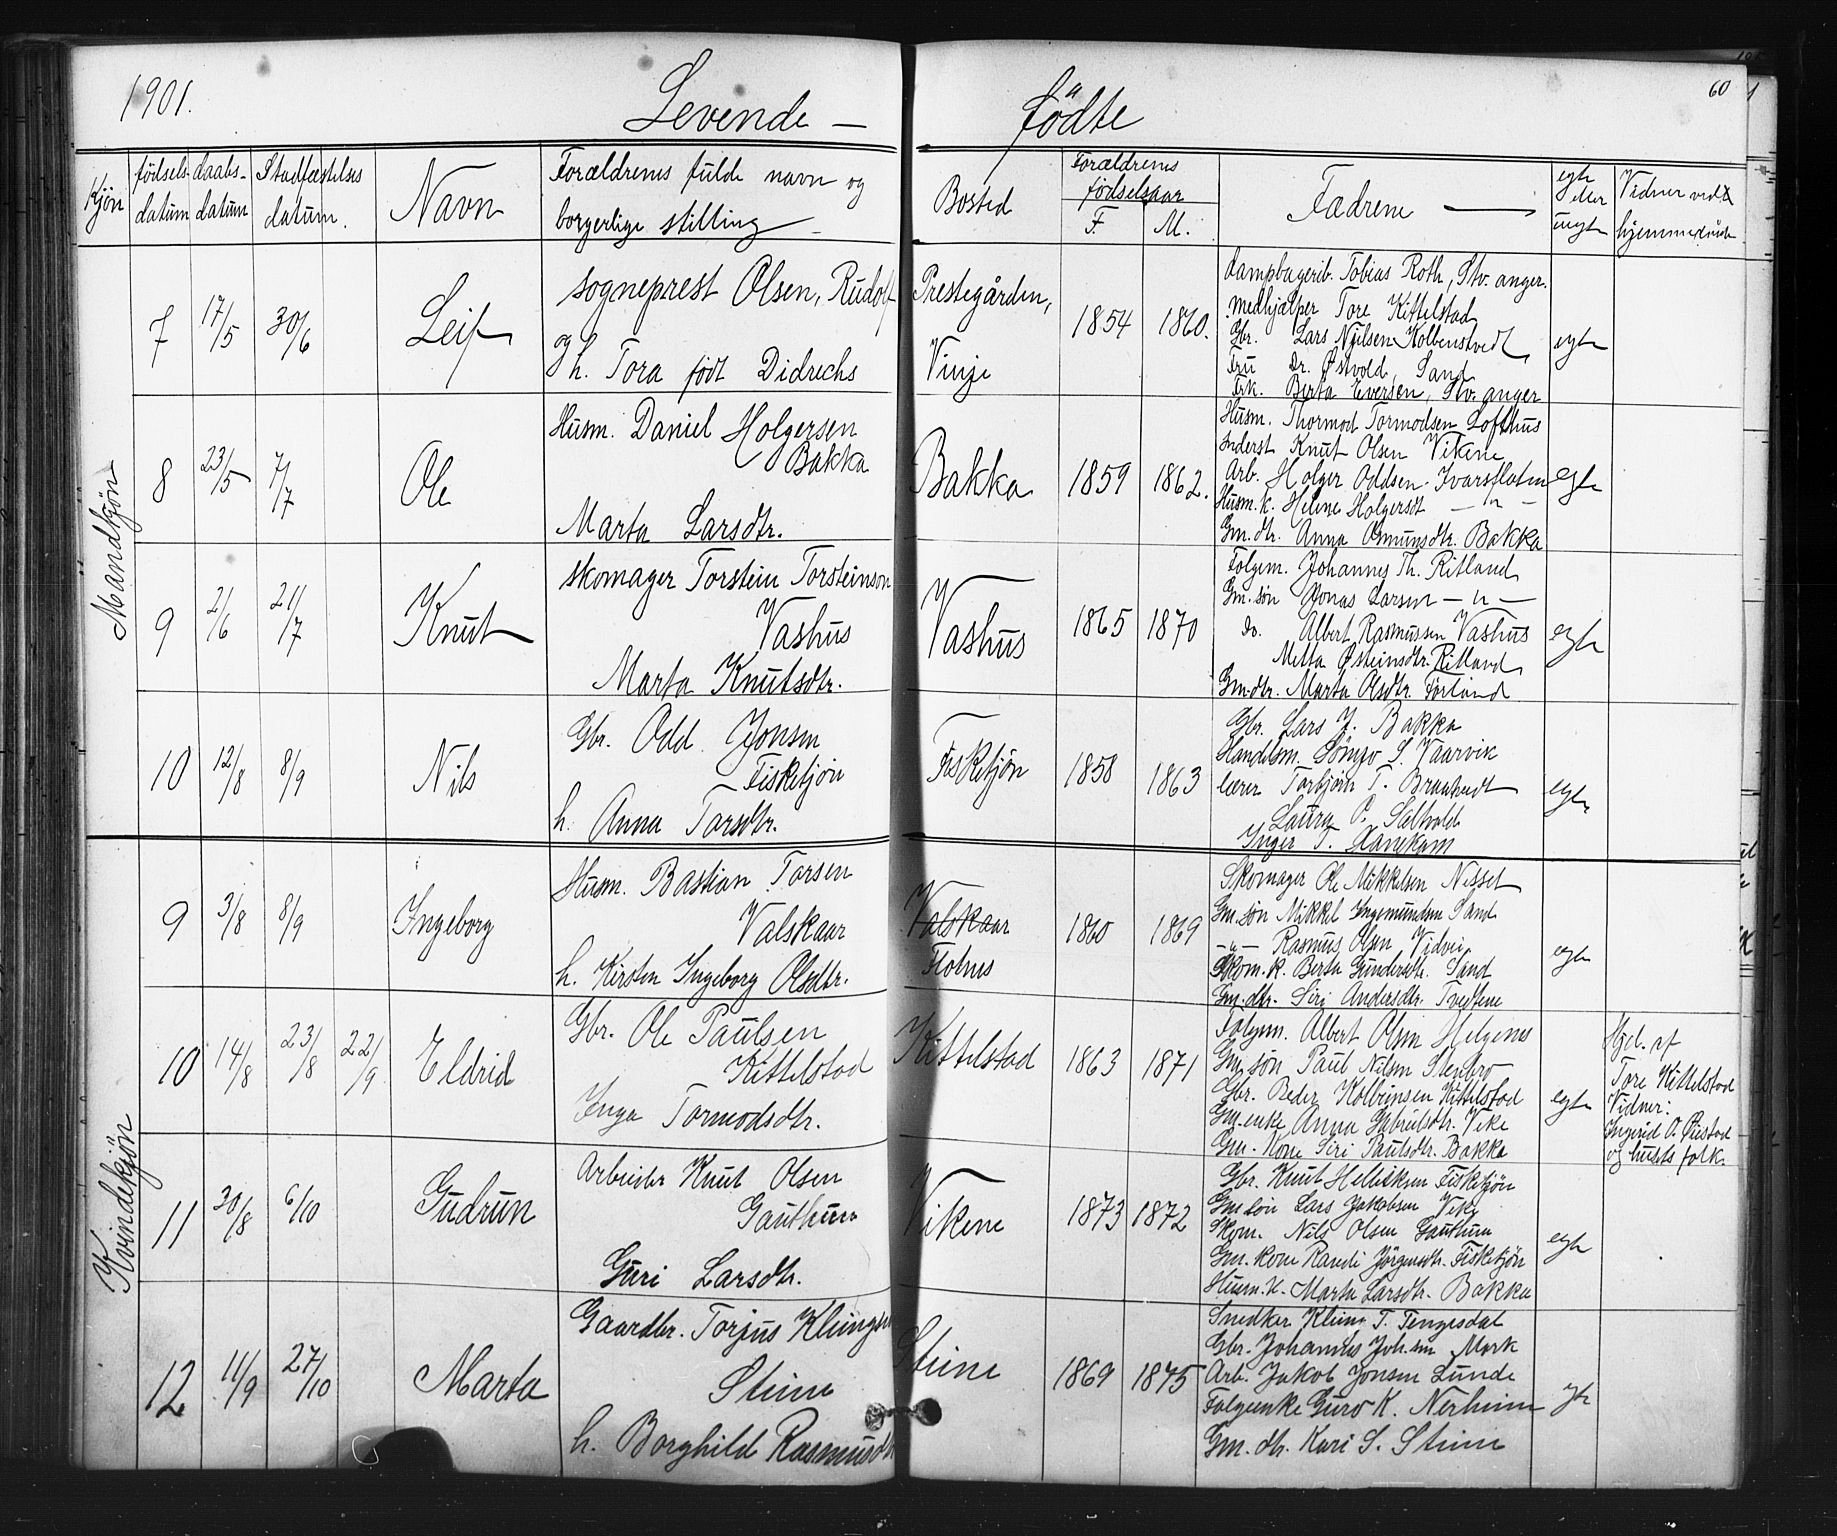 1901.
Levende — födte
60
Kjön
födsels-
datum
daabs-
datum
Stadfæstelses
datum.
Navn
Forældrenes fulde navn og
borgerlige stilling —
Bosted
Forældrenes
födselsaar
F.
M.
Fadrene —
egte
eller
uegte
Vidner ved
hjemmedaab
Mandkjön
7
17/5
30/6
Leif
sogneprest Olsen, Rudolf
og
h. Tora födt Didrechs
Prestegården,
Vinje
1854
1860.
Dampbagerib. Tobias Roth, Stv. anger.
medhjælper Tore Kittelstad
Gbr. Lars Nilsen Kolbenstvedt
Fru Dr. Østvold, Sand
Frk. Berta Eversen, Stv. anger
egte
8
23/5
7/7
Ole
Husm. Daniel Holgersen
Bakka
Marta Larsdtr.
Bakka
1859
1862.
Husm. Thormod Tormodsen Lofthus
Inderst Knut Olsen Vikene
Arb. Holger Oddsen Ivarsflaten
Husm. k. Helene Holgersdt — " —
Gm. dtr. Anna Osmunsdtr. Bakka
egte
9
2/6
21/7
Knut
skomager Torstein Torsteinson
Vashus
Marta Knutsdtr.
Vashus
1865
1870
Folgem. Johannes Th. Ritland
Gm. sön Jonas Larsen — " —
do. Albert Rasmussen Vashus
Metta Østeinsdtr. Ritland
Gm. dtr. Marta Olsdtr. Førland
egte
10
12/8
8/9
Nils
Gbr. Odd Jonsen
Fisketjön
h. Anna Tarsdtr.
Fisketjön
1858
1863
Gbr. Lars J. Bakka
Handelsm. S. Vaarvik
lærer Torbjörn T.
Laura P.
Inger T. Hanekam
egte
Kvindekjön
9
3/8
8/9
Ingeborg
Husm. Bastian Tarsen
Valskaar
h. Kirsten Ingeborg Olsdtr.
Valskaar
Flotnes
1860
1869
Skomager Ole Mikkelsen Nesset
Gm. sön Mikkel Ingemundsen Sand
— " — Rasmus Olsen
Skom. k. Berta Gundersdtr. Sand
Gm. dtr. Siri Andersdtr. Tvedtene
egte
10
14/8
23/8
22/9
Eldrid
Gbr. Ole Paulsen
Kittelstad
Inga Tormodsdtr.
Kittelstad
1863
1871
Folgem. Albert Olsen Helgenes
Gm. sön Paul Nilsen Stenbro
Gbr. Peder Kolbeinsen Kittelstad
Gm. enke Anna Gabrielsdtr. Vike
Gm. kone Siri Paulsdtr. Bakka
egte
Hjd. af
Tore Kittelstad
Vidner:
Ingerid O. Øvestad
og husets folk.
11
30/8
6/10
Gudrun
Arbeider Knut Olsen
Gauthun
Guri Larsdtr.
Vikene
1873
1872
Gbr. Knut Helleiksen Fisketjön
Gm. sön Lars Jakobsen Vike
Skom. Nils Olsen Gauthun
Gm. kone Randi Jörgensdtr. Fisketjön
Husm. k. Marta Larsdtr. Bakka
egte
12
11/9
27/10
Marta
Gaardbr. Torjus Klungsen
Steine
h. Borghild Rasmusdtr
Steine
1869
1875
Snedker T. Tengesdal
Gbr. Johannes Joh.sen Mork
Arb. Jakob Jonsen Lunde
Folgeenke Guro K. Nerheim
Gm. dtr. Kari S. Steine
egte